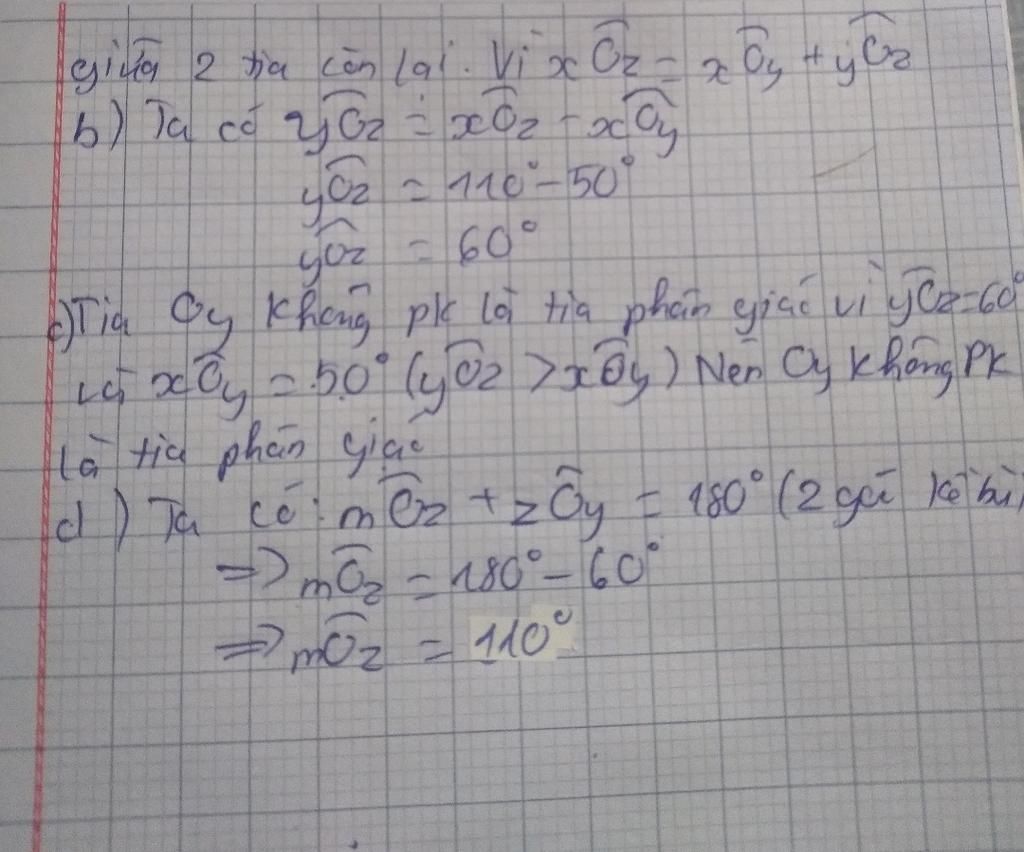 giữa 2 tia còn lại. Vì xÔz = xÔy + yÔz
b) Ta có yÔz = xÔz - xÔy
yÔz = 110° - 50°
yÔz = 60°
c) Tia Oy không pk là tia phân giác vì yÔz = 60°
và xÔy = 50° (yÔz > xÔy) Nên Oy không pk
là tia phân giác
d) Ta có: mÔz + zÔy = 180° (2 góc kề bù)
=> mÔz = 180° - 60°
=> mÔz = 110°